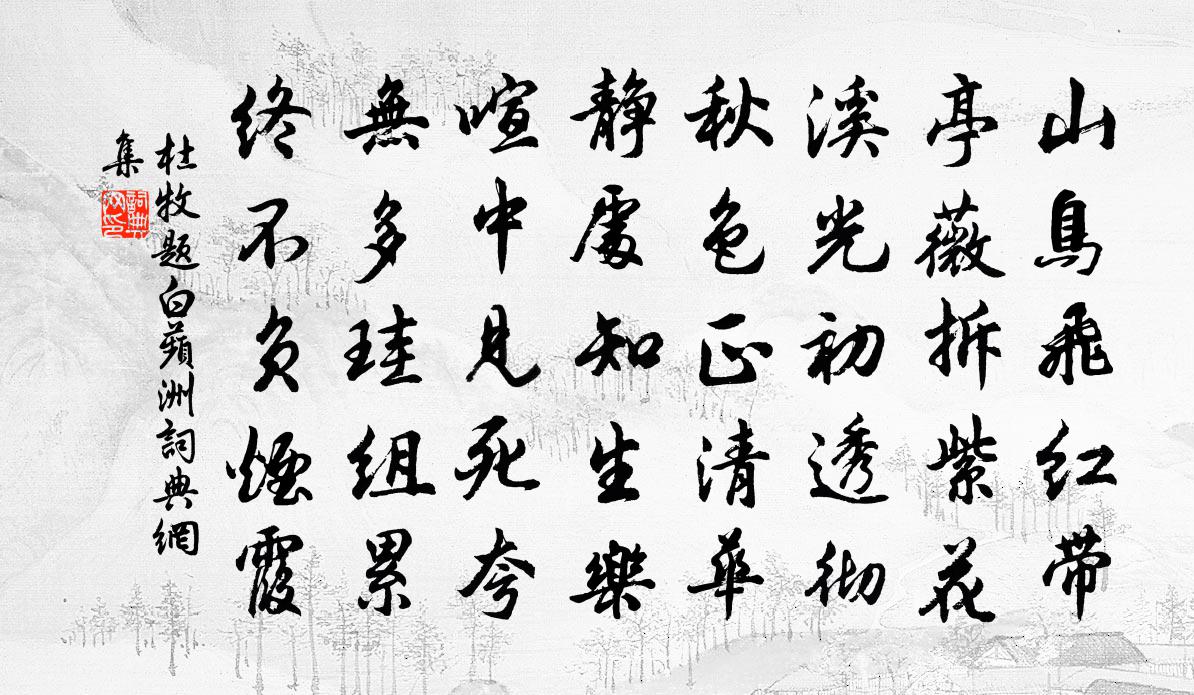 山鳥飛红带
亭薇拆紫花
溪光初透彻
秋色正清華
静處知生樂
喧中見死夸
無多珪组累
终不负煙霞
杜牧题白蘋洲詞典網
集
詞典
网印